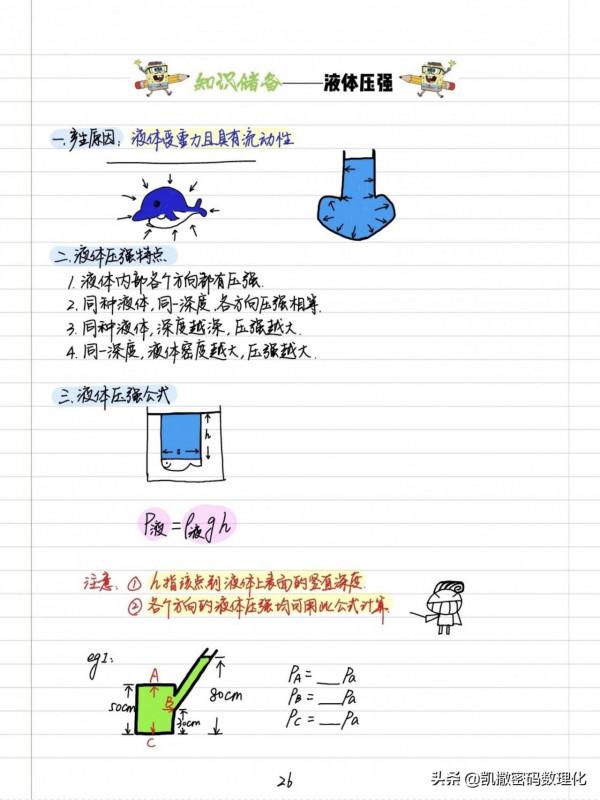 知识储备——液体压强
一.产生原因:液体受重力且具有流动性
二.液体压强特点
1.液体内部各个方向都有压强.
2.同种液体,同一深度,各方向压强相等.
3.同种液体,深度越深,压强越大.
4.同一深度,液体密度越大,压强越大.
三.液体压强公式
h
s
P液=ρ液gh
注意:① h指该点到液体上表面的竖直深度.
② 各个方向的液体压强均可用此公式计算.
eg1:
A
B
C
50cm
30cm
80cm
PA=__Pa
PB=__Pa
PC=__Pa
26
头条 @凯撒密码数理化